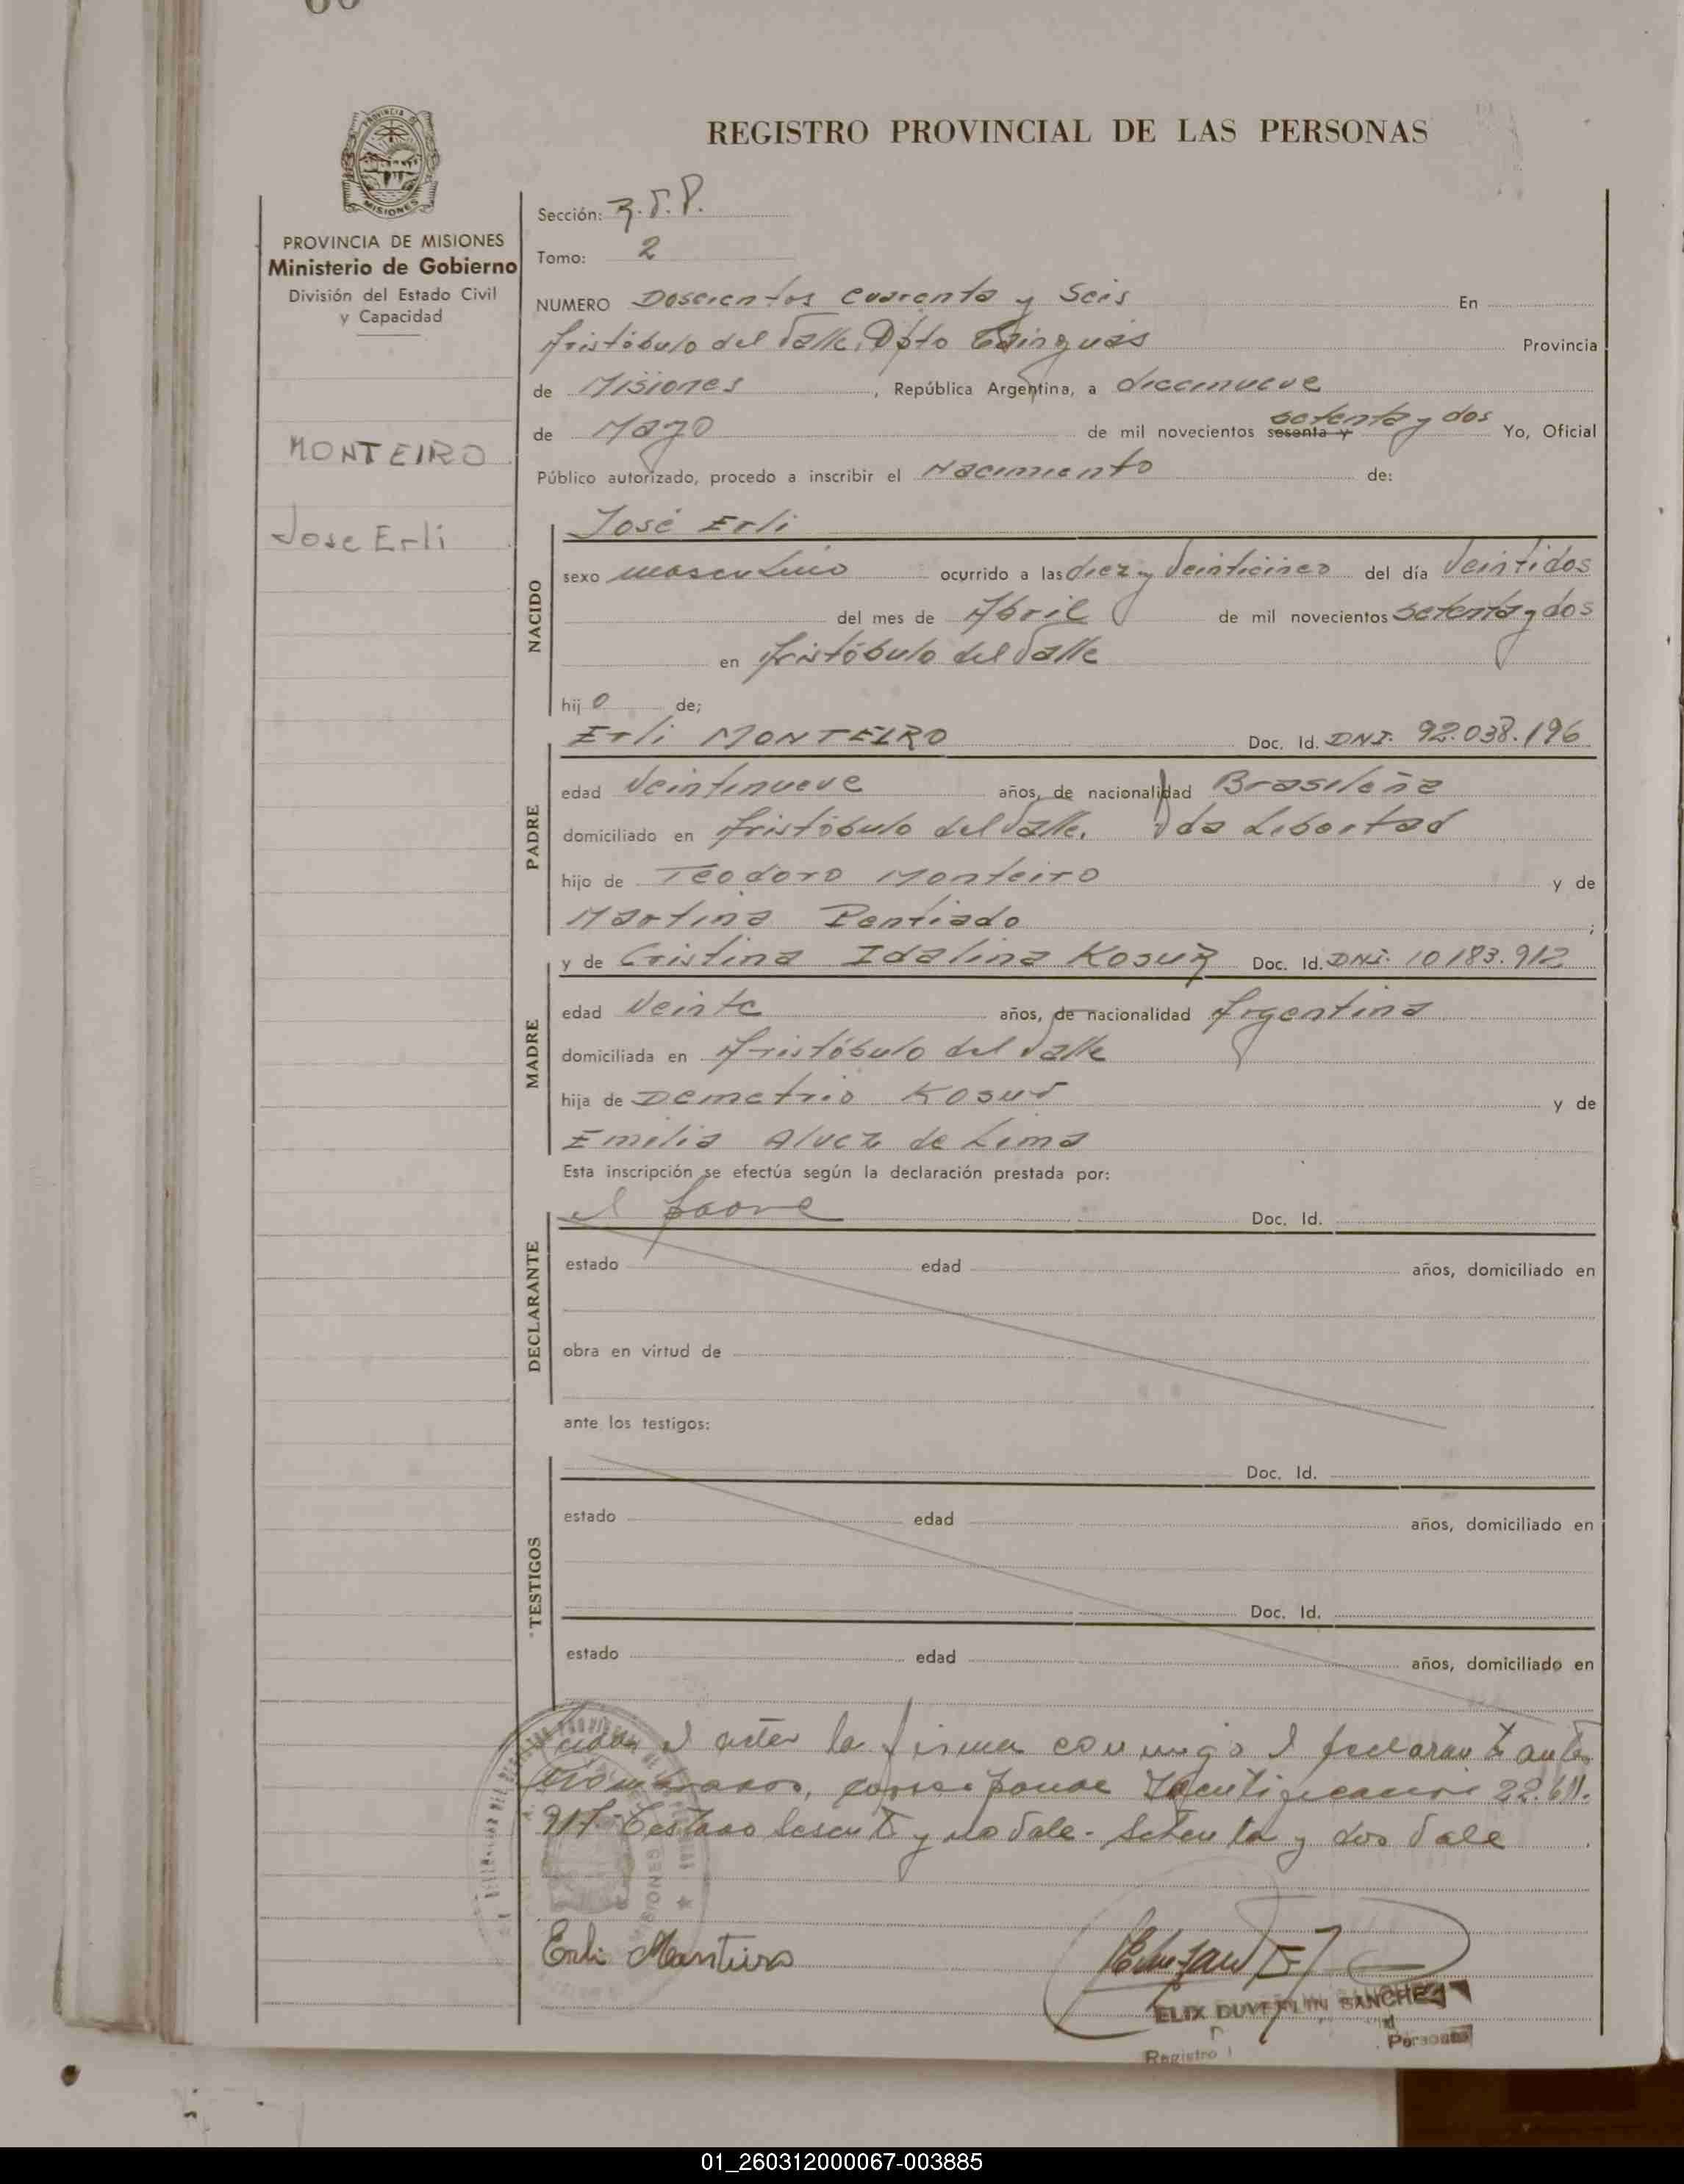 REGISTRO PROVINCIAL DE LAS PERSONAS
PROVINCIA DE MISIONES
Ministerio de Gobierno
División del Estado Civil
y Capacidad
MONTEIRO
Jose Erli
Sección:
Tomo: 2
NUMERO Doscientos cuarenta y Seis En
Aristóbulo del Valle, Dpto Cainguás Provincia
de Misiones, República Argentina, a diecinueve
de Mayo de mil novecientos sesenta y setenta y dos Yo, Oficial
Público autorizado, procedo a inscribir el Nacimiento de:
NACIDO
José Erli
sexo masculino ocurrido a las diez y Veinticinco del día Veintidos
del mes de Abril de mil novecientos setenta y dos
en Aristóbulo del Valle
hijo de;
PADRE
Erli MONTEIRO Doc. Id. DNI. 92.038.196
edad Veintinueve años, de nacionalidad Brasileña
domiciliado en Aristóbulo del Valle. Libertad
hijo de Teodoro Monteiro y de
Martina Pentiado ;
MADRE
y de Cristina Idalina Kosur Doc. Id. DNI. 10.183.912
edad Veinte años, de nacionalidad Argentina
domiciliada en Aristóbulo del Valle
hija de Demetrio Kosur y de
Emilia Alvez de Lima
Esta inscripción se efectúa según la declaración prestada por:
DECLARANTE
el padre Doc. Id.
estado edad años, domiciliado en
obra en virtud de
ante los testigos:
TESTIGOS
Doc. Id.
estado edad años, domiciliado en
Doc. Id.
estado edad años, domiciliado en
el acta la firma conmigo el declarante antes
corresponde 22.611.
Testado sesenta y no Vale. Setenta y dos Vale
MISIONES
Erli Monteiro
ELIX DUVERLIN SANCHEZ
Registro
Personas
01_260312000067-003885